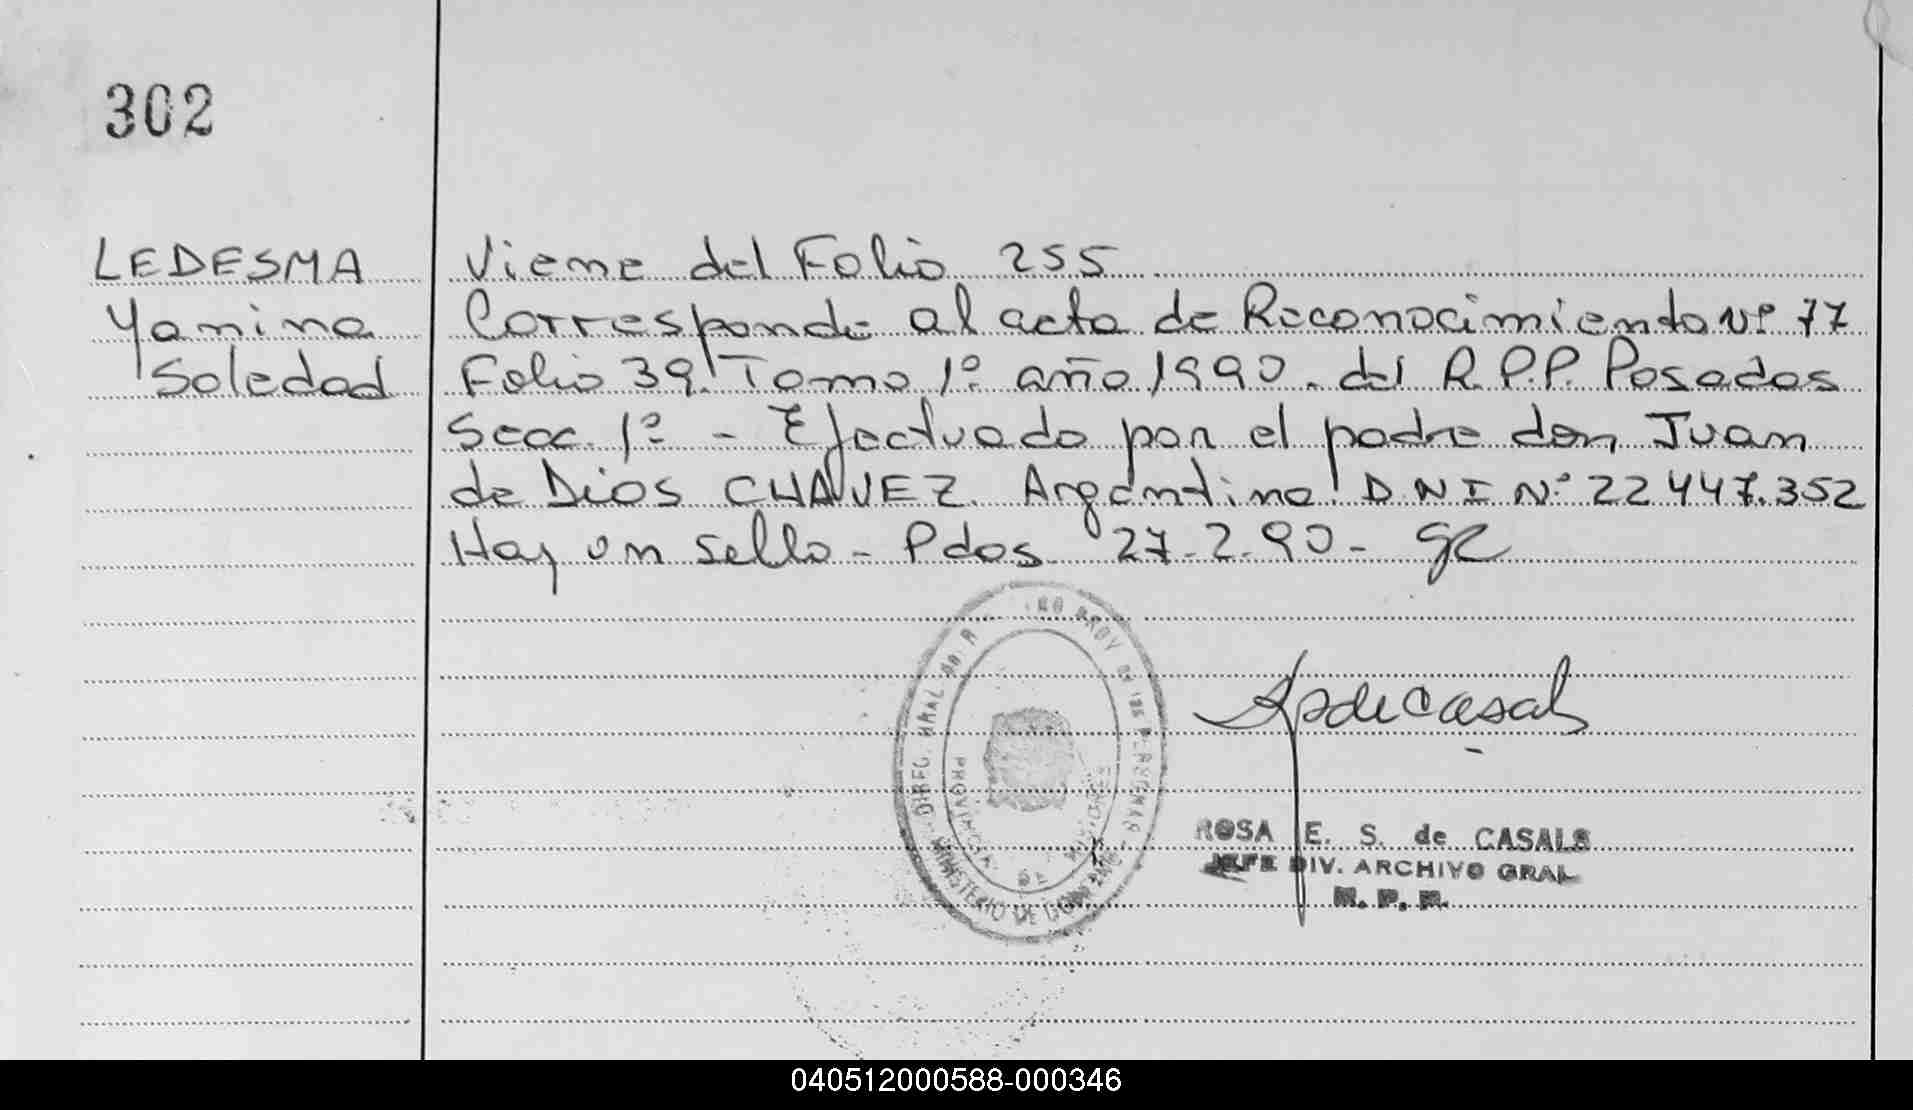 302
LEDESMA
Yanina
Soledad
Viene del Folio 255
Corresponde al acta de Reconocimiento Nº 77
Folio 39. Tomo 1º año 1990. del R.P.P. Posadas
Secc. 1º - Efectuado por el padre don Juan
de Dios CHAVEZ. Argentino. DNI Nº 22447.352
Hay un sello - Pdos 27-2-90-
DIREC. GRAL
MINISTERIO DE GOBIERNO
PROVINCIA DE MISIONES
ROSA E. S. de CASALS
JEFE DIV. ARCHIVO GRAL
R. P. P.
040512000588-000346